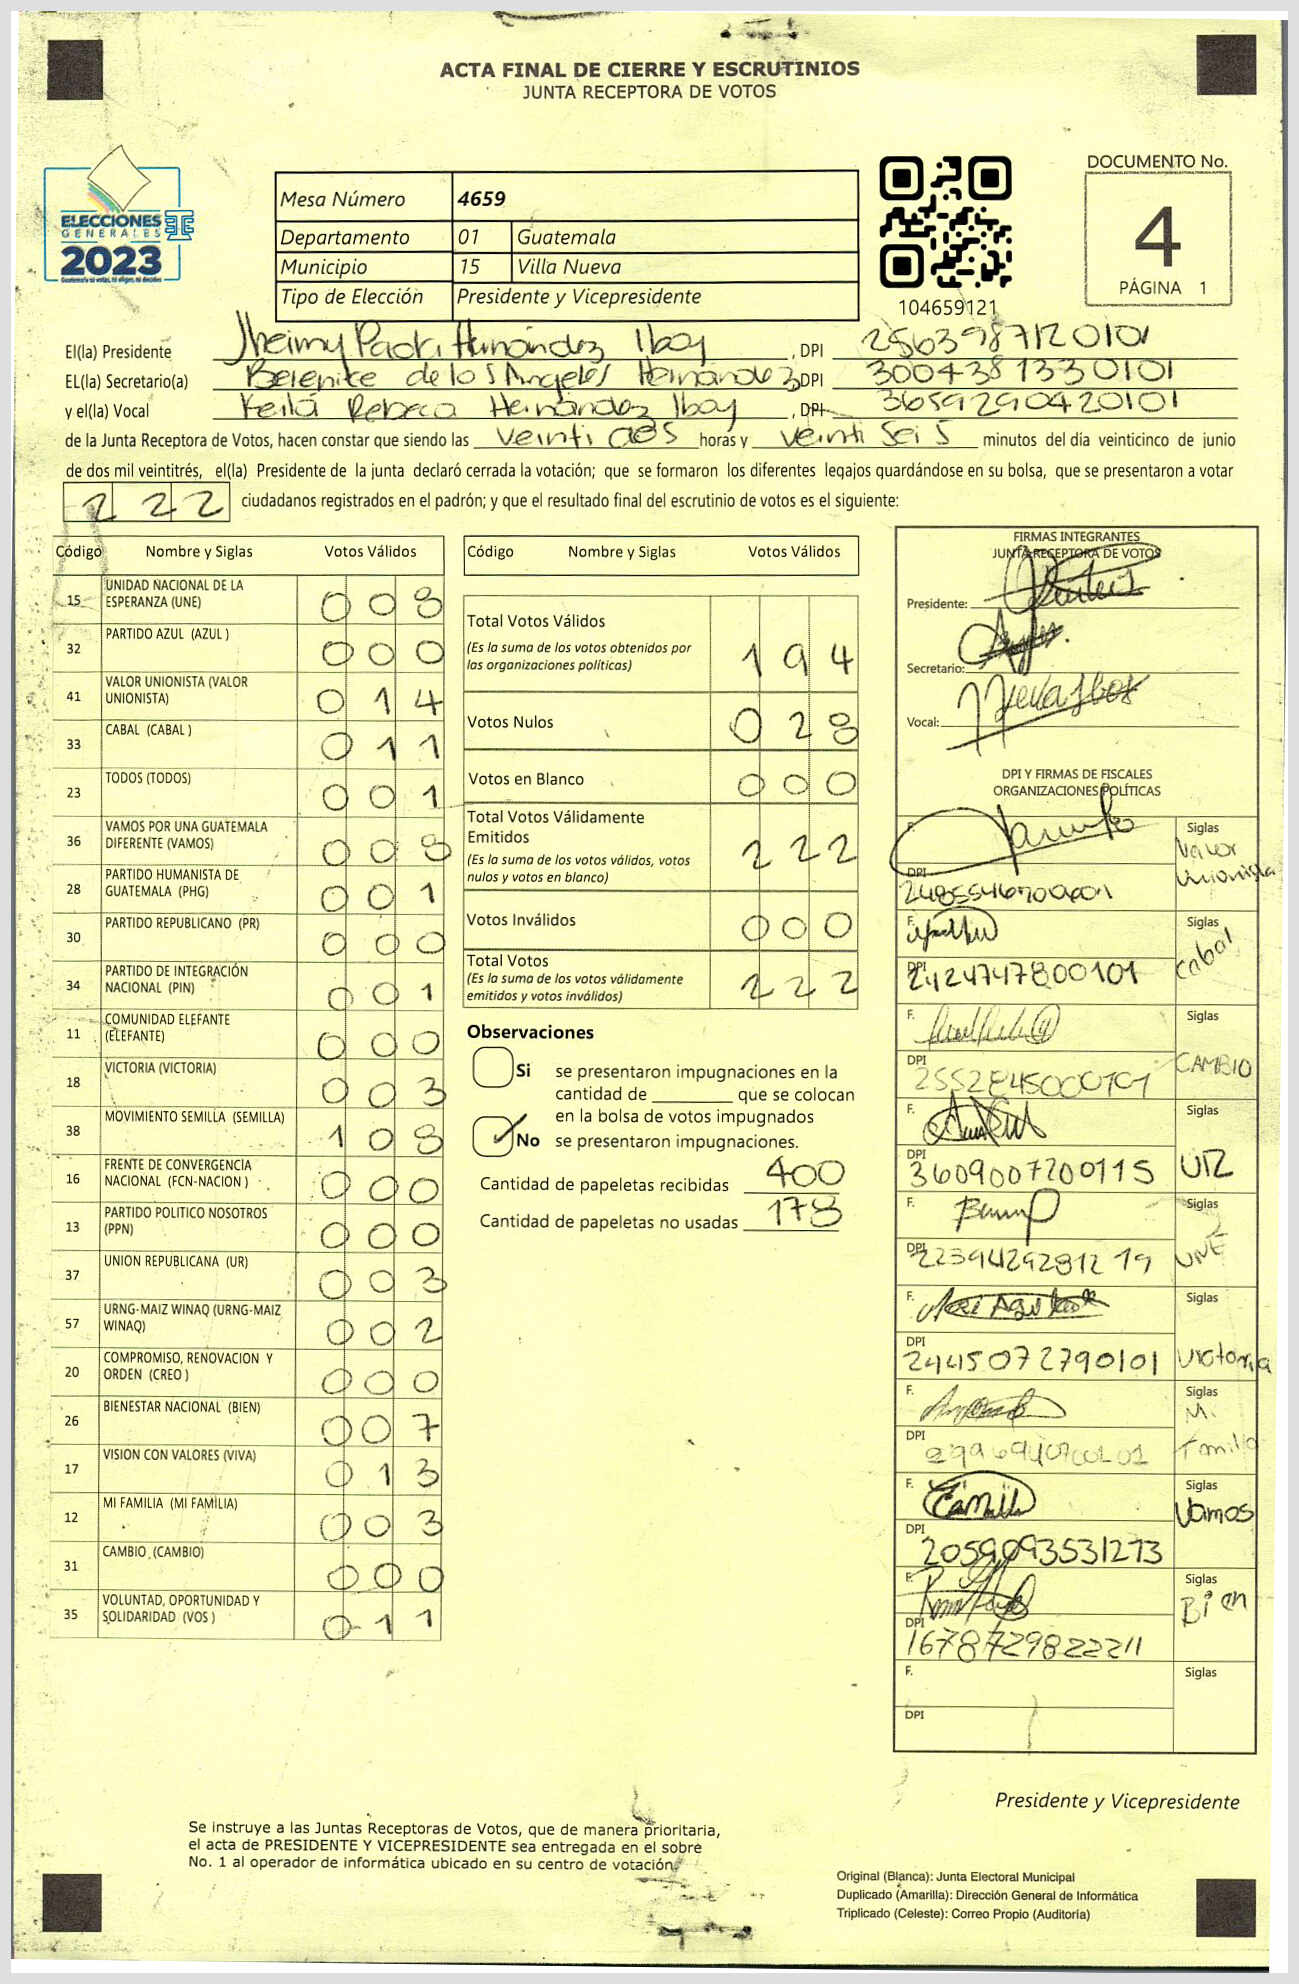 ACTA FINAL DE CIERRE Y ESCRUTINIOS
JUNTA RECEPTORA DE VOTOS
ELECCIONES
GENERALES
2023
Mesa Número 4659
Departamento 01 Guatemala
Municipio 15 Villa Nueva
Tipo de Elección Presidente y Vicepresidente
104659121
DOCUMENTO No.
4
PÁGINA 1
El(la) Presidente Jheimy Paola Hernández Iboy, DPI 2563987120101
EL(la) Secretario(a) Berenice de los Angeles Hernández, DPI 3004381330101
y el(la) Vocal Keila Rebeca Hernández Iboy, DPI 3659290420101
de la Junta Receptora de Votos, hacen constar que siendo las veinti dos horas y veinti seis minutos del día veinticinco de junio
de dos mil veintitrés, el(la) Presidente de la junta declaró cerrada la votación; que se formaron los diferentes legajos guardándose en su bolsa, que se presentaron a votar
222 ciudadanos registrados en el padrón; y que el resultado final del escrutinio de votos es el siguiente:
Código Nombre y Siglas Votos Válidos
15 UNIDAD NACIONAL DE LA ESPERANZA (UNE) 008
32 PARTIDO AZUL (AZUL ) 000
41 VALOR UNIONISTA (VALOR UNIONISTA) 014
33 CABAL (CABAL ) 011
23 TODOS (TODOS) 001
36 VAMOS POR UNA GUATEMALA DIFERENTE (VAMOS) 008
28 PARTIDO HUMANISTA DE GUATEMALA (PHG) 001
30 PARTIDO REPUBLICANO (PR) 000
34 PARTIDO DE INTEGRACIÓN NACIONAL (PIN) 001
11 COMUNIDAD ELEFANTE (ELEFANTE) 000
18 VICTORIA (VICTORIA) 003
38 MOVIMIENTO SEMILLA (SEMILLA) 108
16 FRENTE DE CONVERGENCIA NACIONAL (FCN-NACION ) 000
13 PARTIDO POLITICO NOSOTROS (PPN) 000
37 UNION REPUBLICANA (UR) 003
57 URNG-MAIZ WINAQ (URNG-MAIZ WINAQ) 002
20 COMPROMISO, RENOVACION Y ORDEN (CREO ) 000
26 BIENESTAR NACIONAL (BIEN) 007
17 VISION CON VALORES (VIVA) 013
12 MI FAMILIA (MI FAMILIA) 003
31 CAMBIO (CAMBIO) 000
35 VOLUNTAD, OPORTUNIDAD Y SOLIDARIDAD (VOS ) 011
Código Nombre y Siglas Votos Válidos
Total Votos Válidos 194
(Es la suma de los votos obtenidos por
las organizaciones políticas)
Votos Nulos 028
Votos en Blanco 000
Total Votos Válidamente
Emitidos 222
(Es la suma de los votos válidos, votos
nulos y votos en blanco)
Votos Inválidos 000
Total Votos 222
(Es la suma de los votos válidamente
emitidos y votos inválidos)
Observaciones
Si se presentaron impugnaciones en la
cantidad de ________ que se colocan
en la bolsa de votos impugnados
No se presentaron impugnaciones.
Cantidad de papeletas recibidas 400
Cantidad de papeletas no usadas 178
FIRMAS INTEGRANTES
JUNTA RECEPTORA DE VOTOS
Presidente:
Secretario:
Vocal:
DPI Y FIRMAS DE FISCALES
ORGANIZACIONES POLÍTICAS
F. Siglas Valor Unionista
DPI
F. Siglas Cabal
DPI 2424747800101
F. Siglas CAMBIO
DPI
F. Siglas
DPI 3609007200115
F. Siglas UNE
DPI 2239429281219
F. Siglas Victoria
DPI 2445072790101
F. Siglas M.
DPI
F. Siglas Vamos
DPI 2059093531213
F. Siglas Bien
DPI 1678729822211
F. Siglas
DPI
Presidente y Vicepresidente
Se instruye a las Juntas Receptoras de Votos, que de manera prioritaria,
el acta de PRESIDENTE Y VICEPRESIDENTE sea entregada en el sobre
No. 1 al operador de informática ubicado en su centro de votación.
Original (Blanca): Junta Electoral Municipal
Duplicado (Amarilla): Dirección General de Informática
Triplicado (Celeste): Correo Propio (Auditoría)